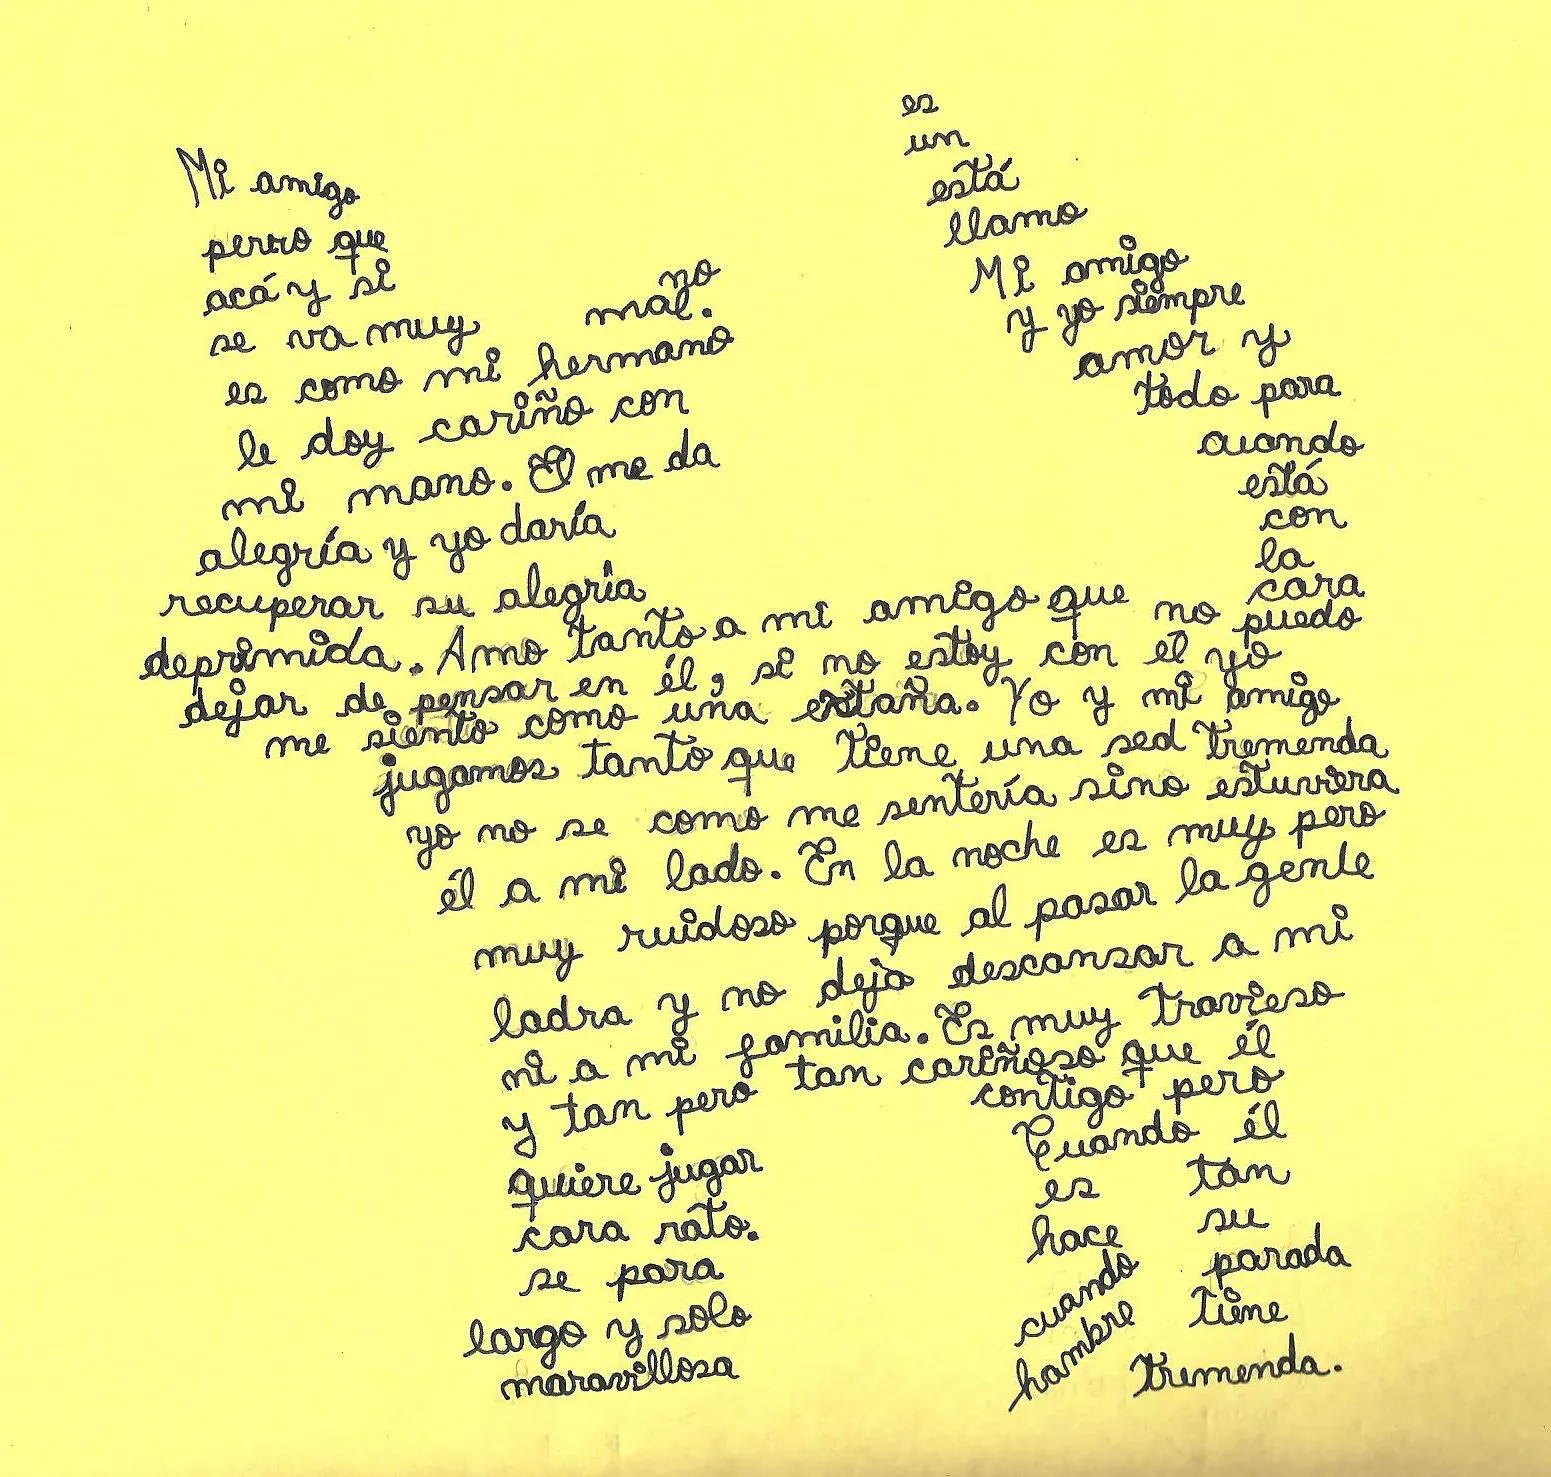 Mi amigo es un
perro que está
acá y si no llamo
se va muy mal. Mi amigo
es como mi hermano y yo siempre
le doy cariño con amor y
mi mano. El me da todo para
alegría y yo daría cuando está
recuperar su alegría con la cara
deprimida. Amo tanto a mi amigo que no puedo
dejar de pensar en él, si no estoy con él yo
me siento como una extaña. Yo y mi amigo
jugamos tanto que tiene una sed tremenda
yo no se como me sentería sino estuviera
él a mi lado. En la noche es muy pero
muy ruidoso porque al pasar la gente
ladra y no deja descansar a mi
ni a mi familia. Es muy travieso
y tan pero tan cariñoso que él
quiere jugar contigo pero
cara rato. Cuando él
se para es tan
largo y solo hace su
maravillosa parada
cuando tiene
hambre tremenda.